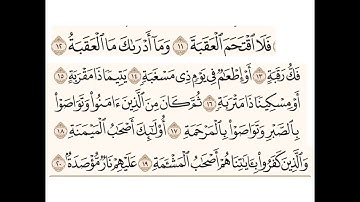 فَلَا ٱقْتَحَمَ ٱلْعَقَبَةَ ١١ وَمَآ أَدْرَىٰكَ مَا ٱلْعَقَبَةُ ١٢
فَكُّ رَقَبَةٍ ١٣ أَوْ إِطْعَٰمٌ فِى يَوْمٍ ذِى مَسْغَبَةٍ ١٤ يَتِيمًا ذَا مَقْرَبَةٍ ١٥
أَوْ مِسْكِينًا ذَا مَتْرَبَةٍ ١٦ ثُمَّ كَانَ مِنَ ٱلَّذِينَ ءَامَنُوا۟ وَتَوَاصَوْا۟
بِٱلصَّبْرِ وَتَوَاصَوْا۟ بِٱلْمَرْحَمَةِ ١٧ أُو۟لَٰٓئِكَ أَصْحَٰبُ ٱلْمَيْمَنَةِ ١٨
وَٱلَّذِينَ كَفَرُوا۟ بِـَٔايَٰتِنَا هُمْ أَصْحَٰبُ ٱلْمَشْـَٔمَةِ ١٩ عَلَيْهِمْ نَارٌ مُّؤْصَدَةٌۢ ٢٠